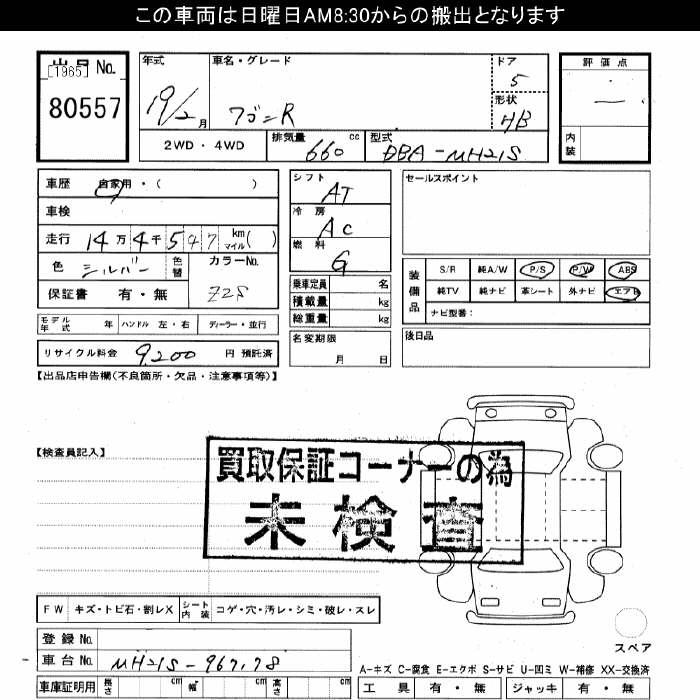 この車両は日曜日AM8:30からの搬出となります
出品 No.
[1965]
80557
年式
19/2月
車名・グレード
ワゴンR
ドア
5
形状
HB
評価点
内装
2WD ・ 4WD
排気量 660 cc
型式 DBA-MH21S
車歴 自家用・( )
車検
走行 14万4千547 km マイル( )
色 シルバー 色替
カラーNo. Z2S
保証書 有・無
シフト AT
冷房 AC
燃料 G
乗車定員 名
積載量 kg
総重量 kg
名変期限 月 日
セールスポイント
装備品
S/R 純A/W P/S P/W ABS
純TV 純ナビ 革シート 外ナビ エアB
ナビ型番:
後日品
モデル年式 年 ハンドル 左・右 ディーラー・並行
リサイクル料金 9,200 円 預託済
【出品店申告欄(不良箇所・欠品・注意事項等)】
【検査員記入】
買取保証コーナーの為
未検査
FW キズ・トビ石・割レX シート内装 コゲ・穴・汚レ・シミ・破レ・スレ
登録 No.
車台 No. MH21S-967178
車庫証明用 長さ cm 幅 cm 高さ cm
スペア
A-キズ C-腐食 E-エクボ S-サビ U-凹ミ W-補修 XX-交換済
工具 有・無 ジャッキ 有・無